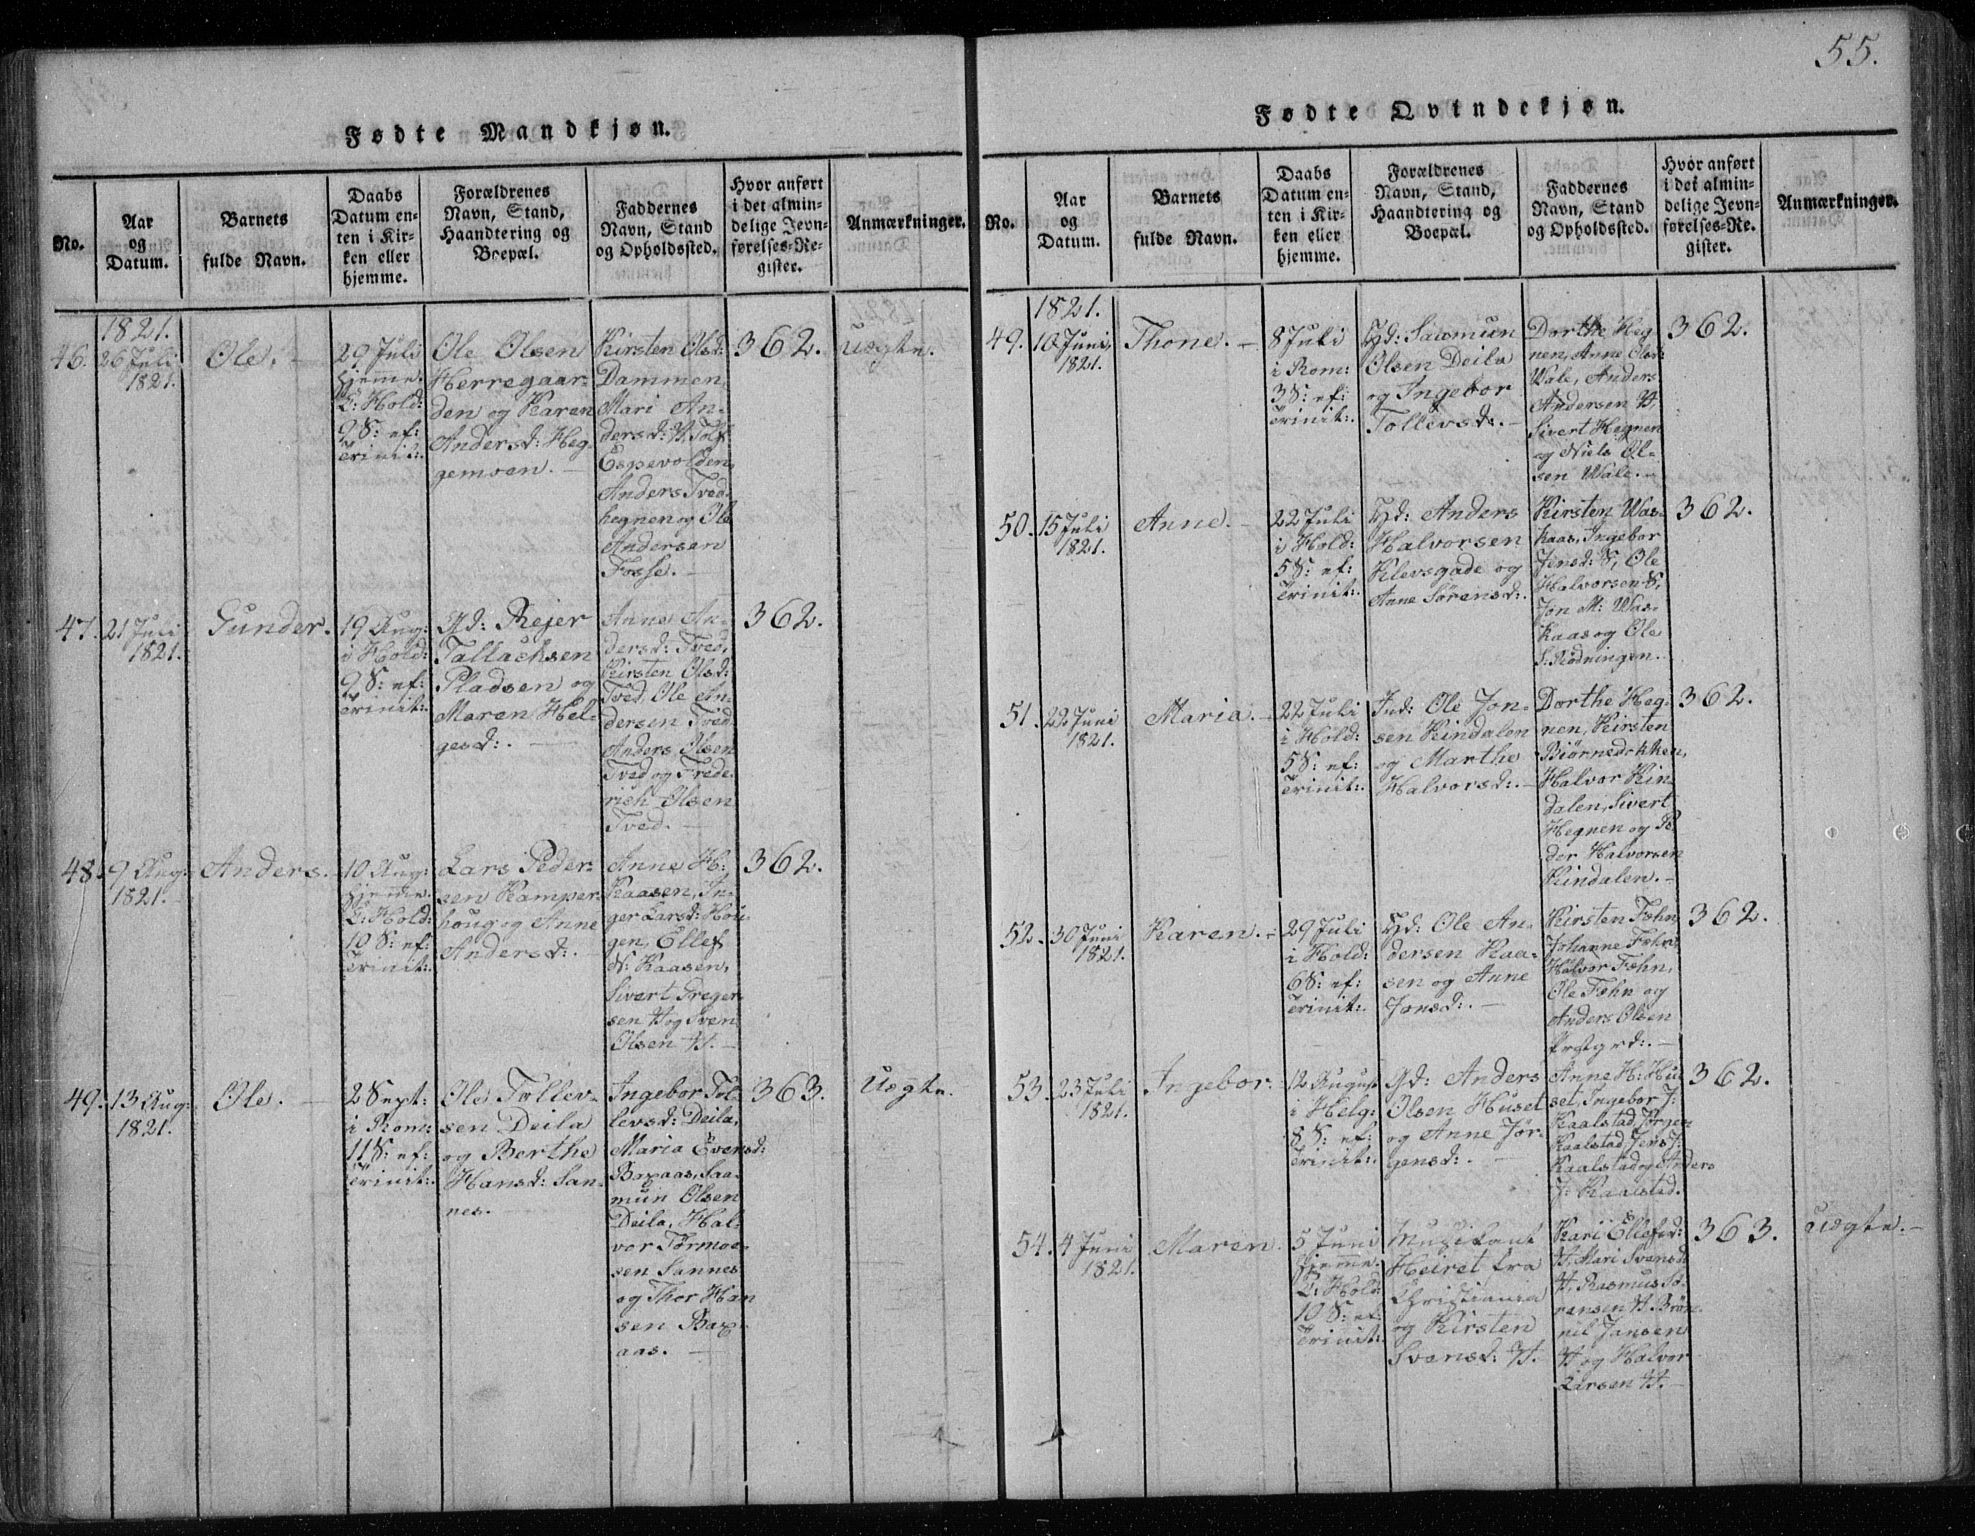 55.
Fødte Mandkjøn.
No.
Aar
og
Datum.
Barnets
fulde Navn.
Daabs
Datum en-
ten i Kir-
ken eller
hjemme.
Forældrenes
Navn, Stand,
Haandtering og
Boepæl.
Faddernes
Navn, Stand
og Opholdssted.
Hvor anført
i det almin-
delige Jevn-
førelses-Re-
gister.
Anmærkninger.
1821.
46.
26 Juli
1821.
Ole. -
29 Juli
hjemme.
E: Hold:
9 S: ef:
Trinit:.
Ole Olsen
Herregaar-
den og Karen
Andersd: Heg-
gemoen. -
Kirsten Olsd:
Dammen,
Mari An-
dersd: H. Tolf
Espevolden,
Anders Tved-
hegnen og Ole
Andersen
Fosse. -
362.
Uægte.
47.
21 Juli
1821.
Gunder.
19 Aug:
i Hold:
9 S: ef:
Trinit:.
Gd: Rejer
Tallachsen
Pladsen og
Maren Hel-
gesd:. -
Anne An-
dersd: Tved,
Kirsten Olsd:
Tved, Ole An-
dersen Tved
Anders Olsen
Tved og Frede-
rich Olsen
Tved. -
362.
48.
9 Aug:
1821.
Anders.
10 Aug:
hjemme.
E: Hold:
10 S: ef:
Trinit:.
Lars Peder-
sen Kamper-
houg og Anne
Andersd:. -
Anne H:
Kaasen, In-
ger Larsd: Hou-
gen, Ellef
N: Kaasen,
Sivert Greger-
sen H og Sven
Olsen H. -
362.
49.
13 Aug:
1821.
Ole. -
2 Sept:
i Rom:
11 S: ef:
Trinit:.
Ole Tollev-
sen Deila
og Berthe
Hansd: San-
nes. -
Ingebor Tol-
levsd: Deila,
Maria Evensd:
Baxaas, Saa-
mun Olsen
Deila, Hal-
vor Tormoe-
sen Sannes
og Thor Han
sen Bax-
aas. -
363.
Uægte.
Fødte Qvindekjøn.
No.
Aar
og
Datum.
Barnets
fulde Navn.
Daabs
Datum en-
ten i Kir-
ken eller
hjemme.
Forældrenes
Navn, Stand,
Haandtering og
Boepæl.
Faddernes
Navn, Stand
og Opholdssted.
Hvor anført
i det almin-
delige Jevn-
førelses-Re-
gister.
Anmærkninger.
1821.
49.
10 Juni
1821.
Thone. -
8 Juli
i Rom:
3 S: ef:
Trinit:.
Hd: Saamun
Olsen Deila
og Ingebor
Tollevsd:. -
Dorthe Heg-
nen, Anne Olsd:
Wale, Anders
Andersen H,
Sivert Hegnen
og Niels Ol-
sen Wale. -
362.
50.
15 Juli
1821.
Anne. -
22 Juli
i Hold:
5 S: ef:
Trinit:.
Hd: Anders
Halvorsen
Klevsgade og
Anne Sørensd:.
Kirsten Was-
kaas, Ingebor
Jensd: S, Ole
Halvorsen S,
Jon M: Was-
kaas og Ole
S. Rødningen.
362.
51.
22 Juni
1821.
Maria. -
22 Juli
i Hold:
5 S: ef:
Trinit:.
Ind: Ole Jon-
sen Kindalen
og Marthe
Halvorsd:. -
Dorthe Heg-
nen, Kirsten
Biørnedokken,
Halvor Kin-
dalen, Sivert
Hegnen og Pe-
der Halvorsen
Kindalen. -
362.
52.
30 Juni
1821.
Karen. -
29 Juli
i Hold:
6 S: ef:
Trinit:.
Hd: Ole An-
dersen Kaa-
sen og Anne
Jonsd:. -
Kirsten Fæhn
Johanne Fæhn
Halvor Fæhn,
Ole Fæhn og
Anders Olsen
Præstgrd:. -
362.
53.
23 Juli
1821.
Ingebor.
12 August
i Helg:
8 S: ef:
Trinit:.
Gd: Anders
Olsen Huset
og Anne Jør-
gensd:. -
Anne H: Hu-
set, Ingebor J:
Kaalstad, Jørgen
Kaalstad, Jens J:
Kaalstad og Anders
J: Kaalstad.
362.
54.
4 Juni
1821.
Maren.
5 Juni
hjemme.
E: Hold
10 S: ef
Trinit:
Muzikant
Heiret fra
Christiania
og Kirsten
Svensd: H.
Kari Ellefsd:
H, Mari Svensd
H, Rasmus Sø-
rensen H. Brøn-
nil Jansen
H og Halvor
Larsen H. -
363.
Uægte. -